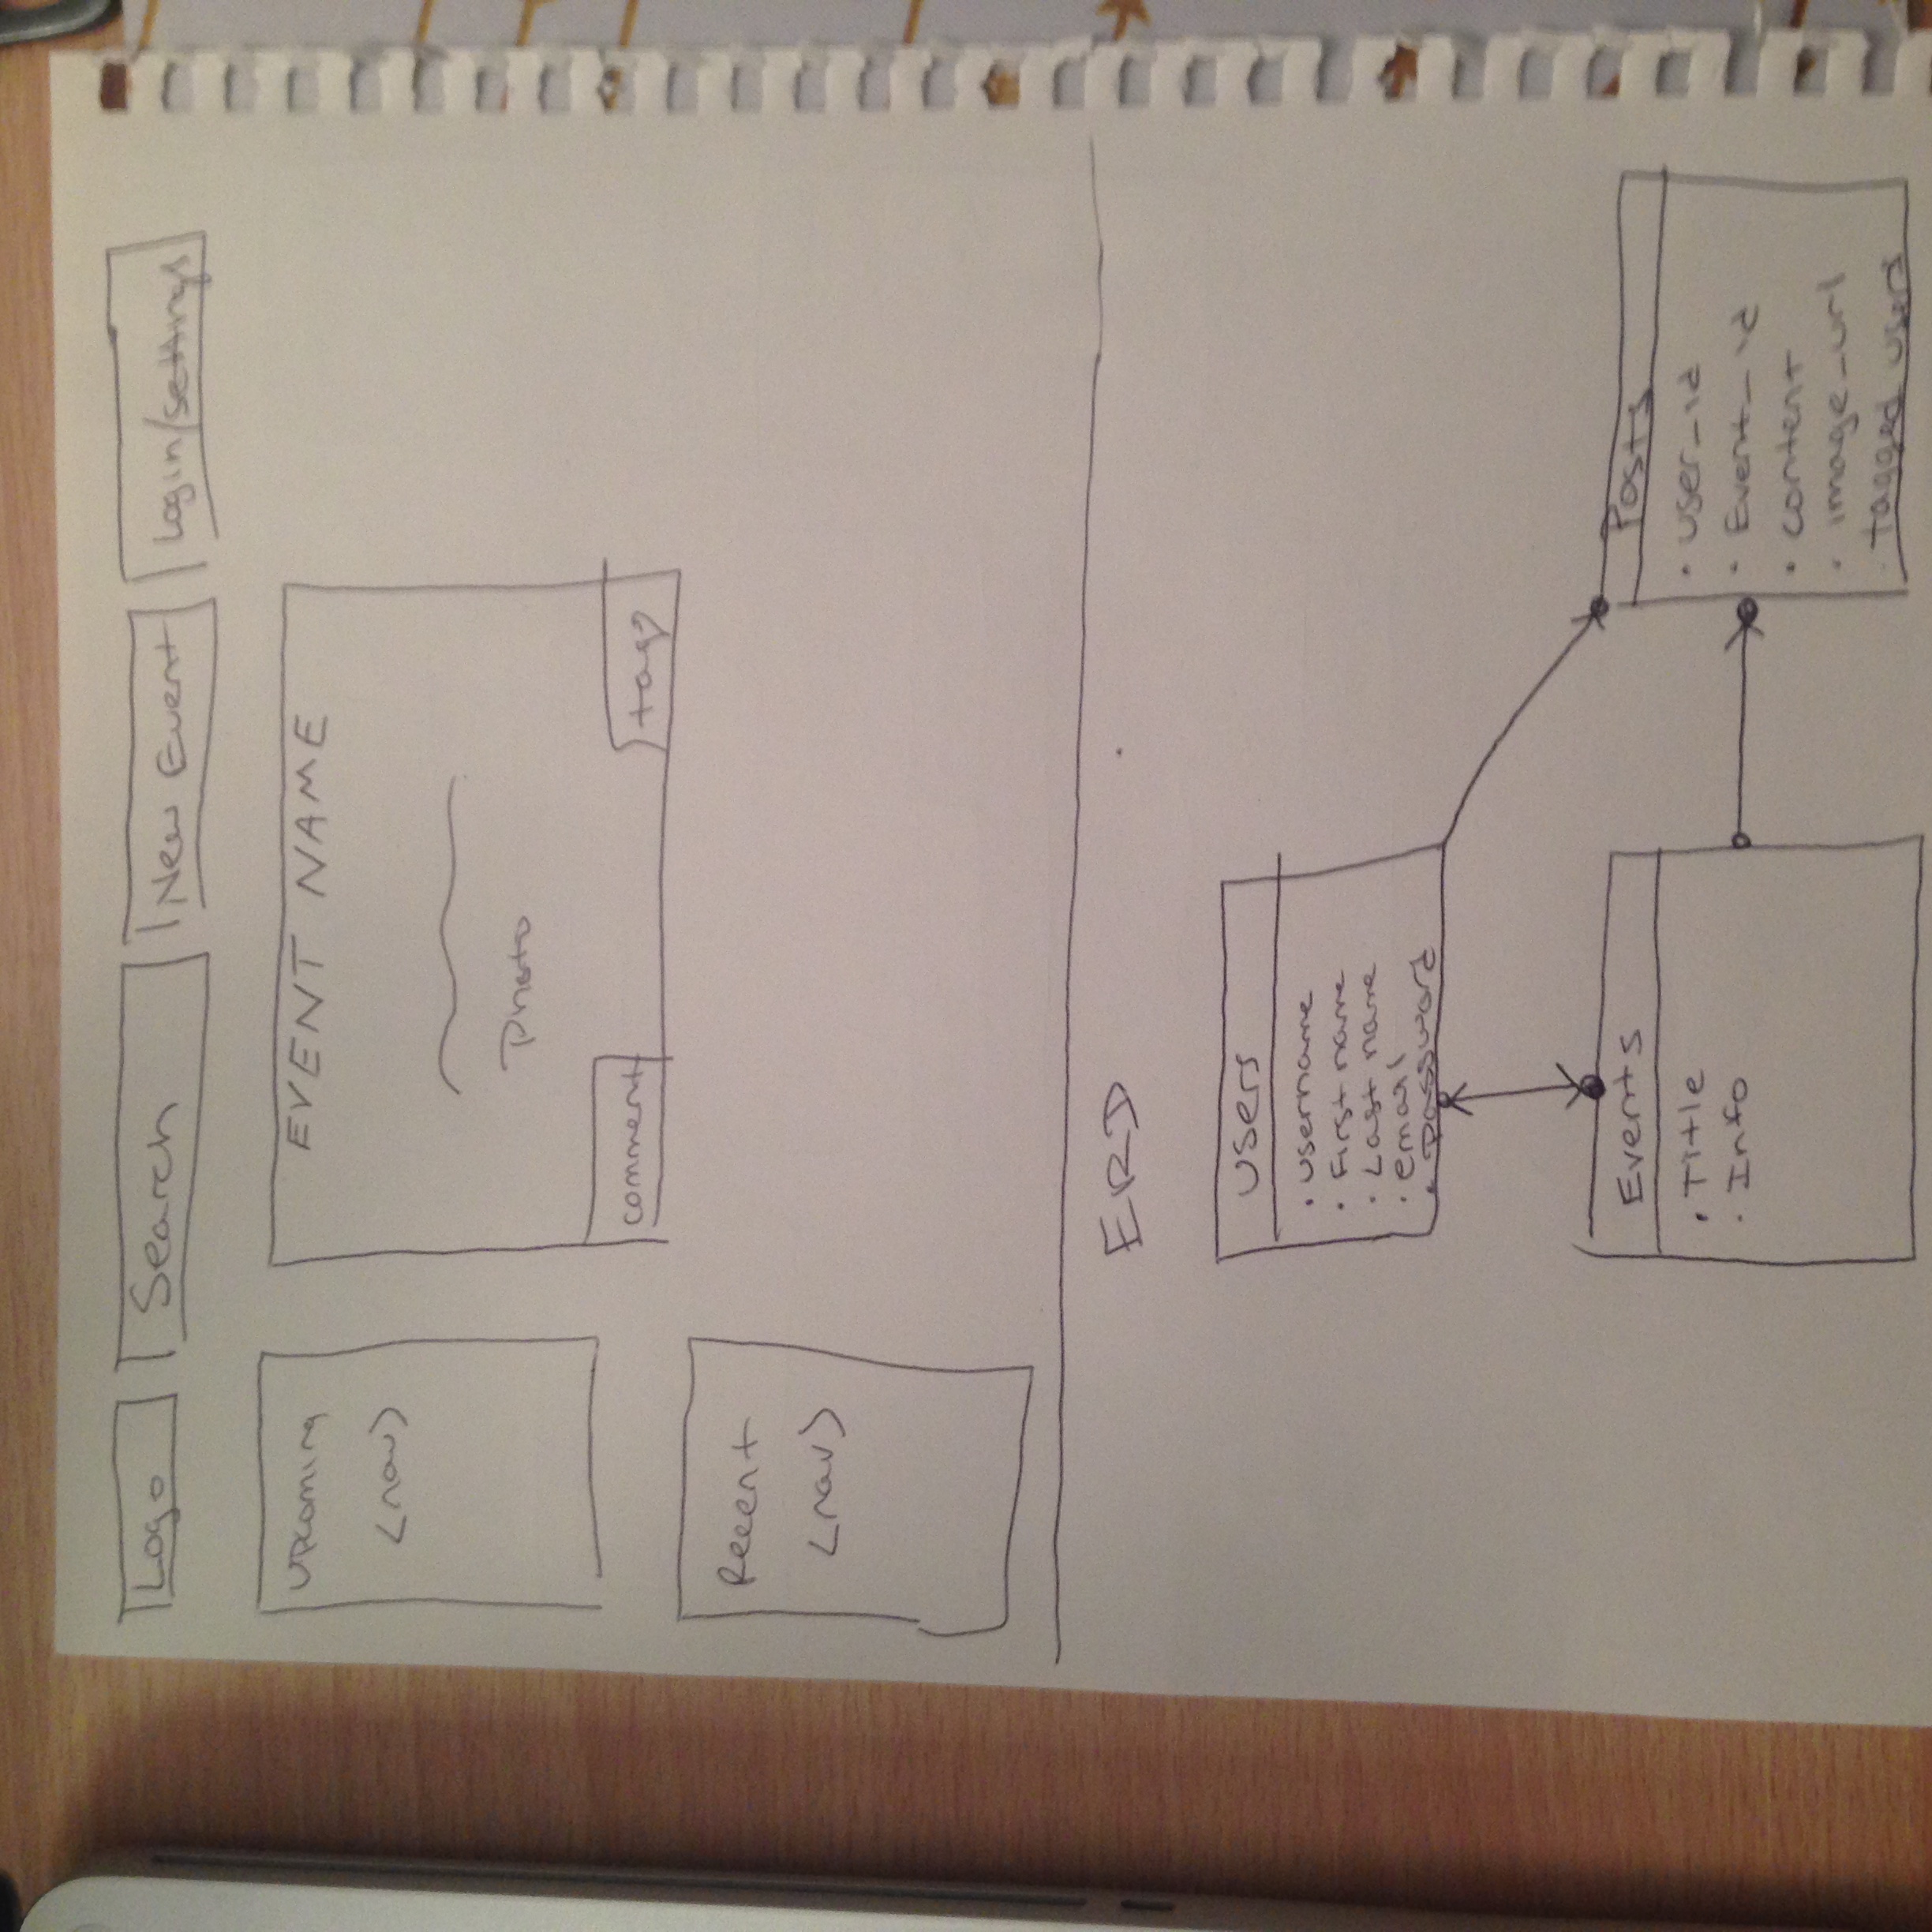 Logo
Search
New Event
Login/settings
Upcoming
<nav>
EVENT NAME
Photo
comment
tag
Recent
<nav>
ERD
Users
• username
• First name
• Last name
• email
• password
Events
• Title
• Info
Posts
• user_id
• Event_id
• content
• image_url
• tagged users